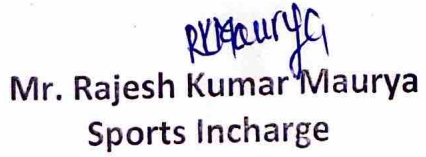 RKMaurya
Mr. Rajesh Kumar Maurya
Sports Incharge